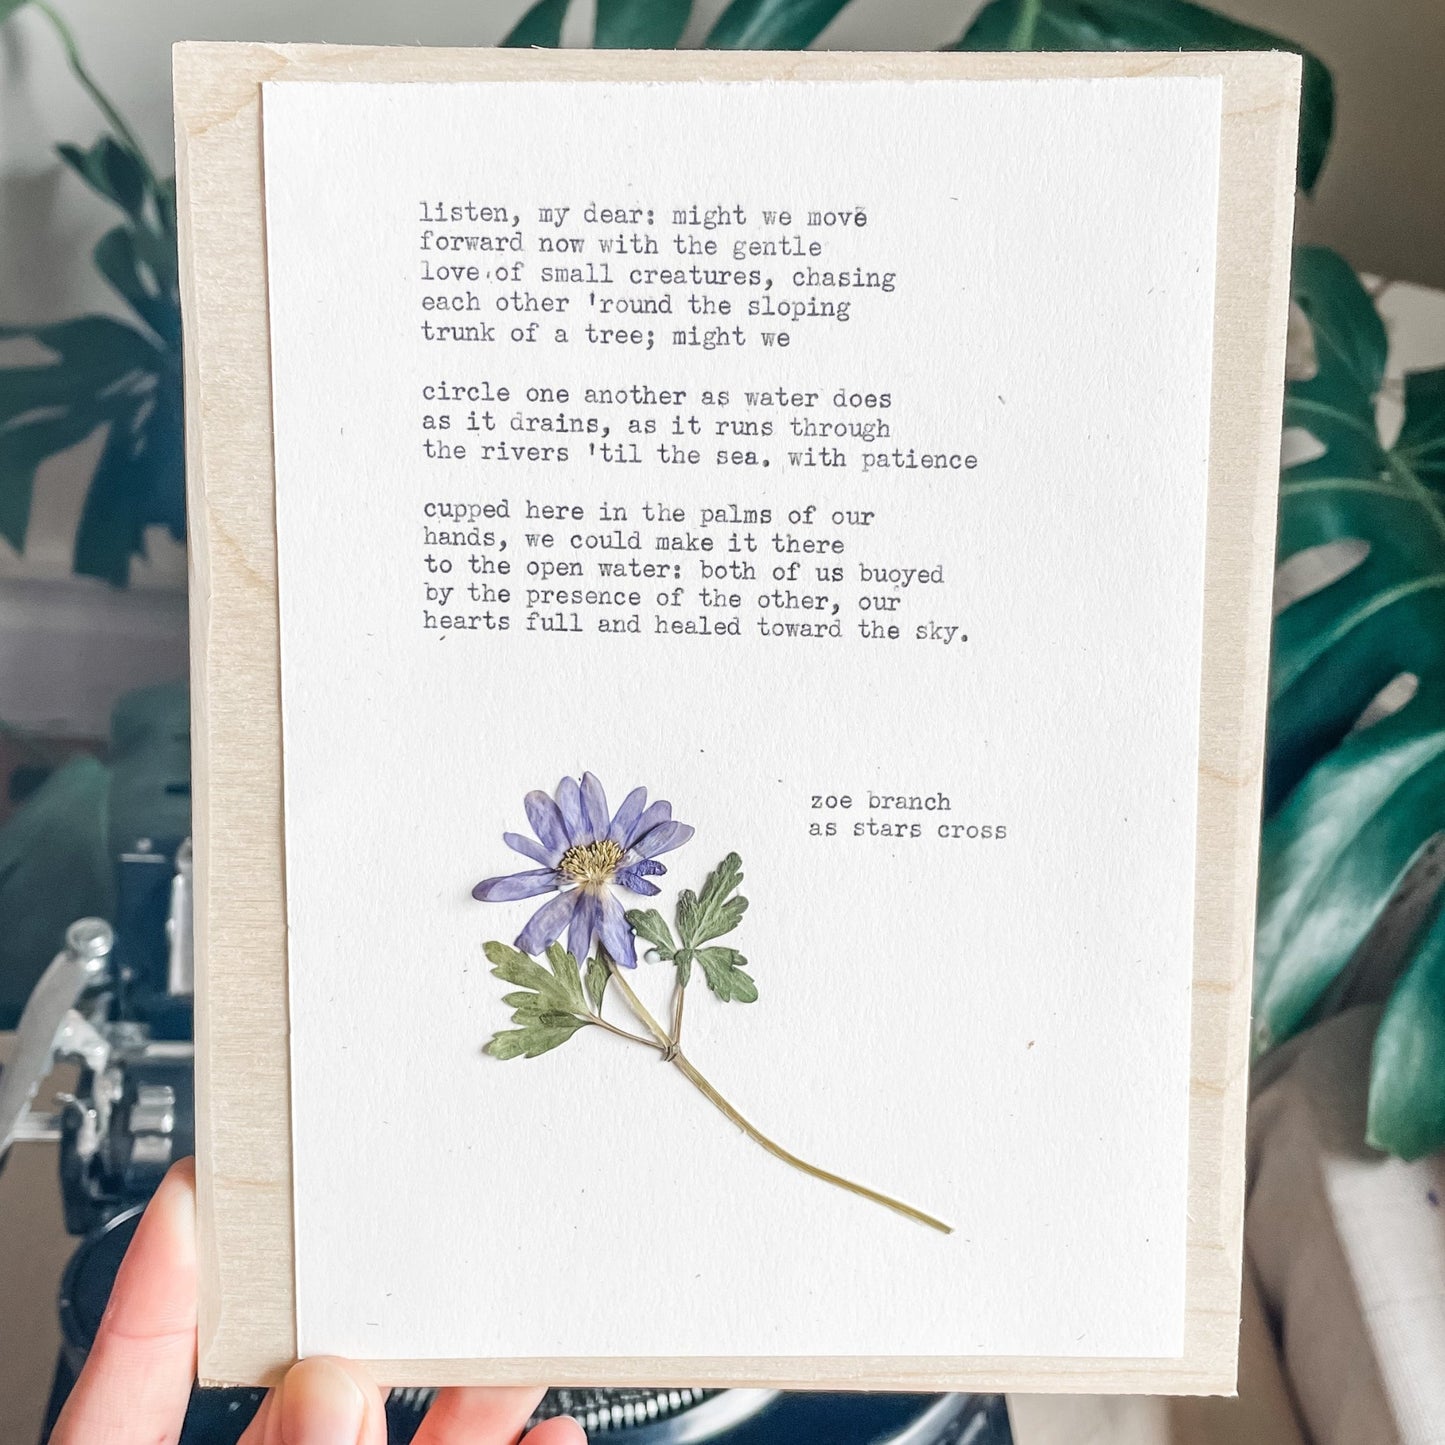 listen, my dear: might we move
forward now with the gentle
love of small creatures, chasing
each other 'round the sloping
trunk of a tree; might we
circle one another as water does
as it drains, as it runs through
the rivers 'til the sea. with patience
cupped here in the palms of our
hands, we could make it there
to the open water: both of us buoyed
by the presence of the other, our
hearts full and healed toward the sky.
zoe branch
as stars cross